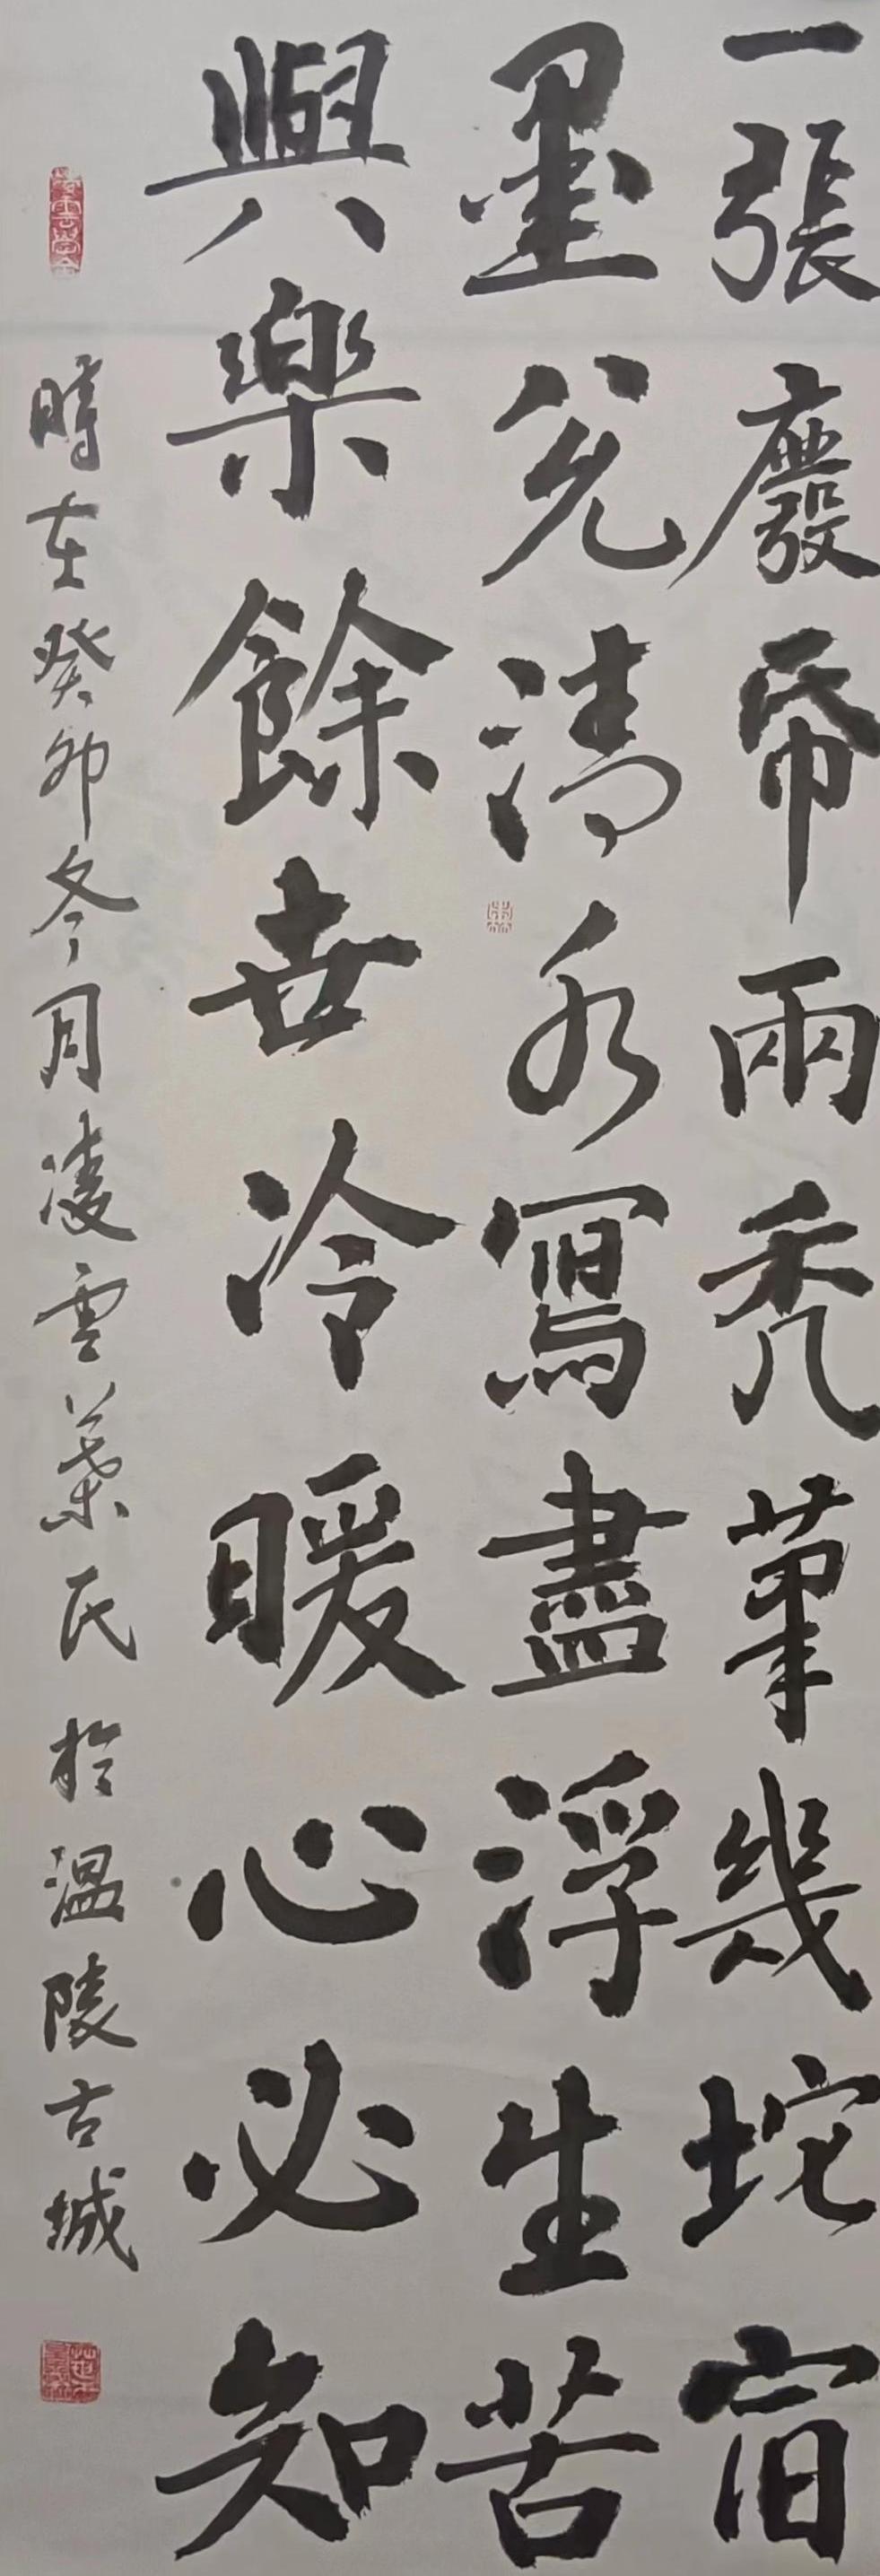 一張廢帋兩秃筆幾坨宿
墨兌清水寫盡浮生苦
與樂餘世冷暖心必知
時在癸卯冬月凌雲葉氏於溫陵古城